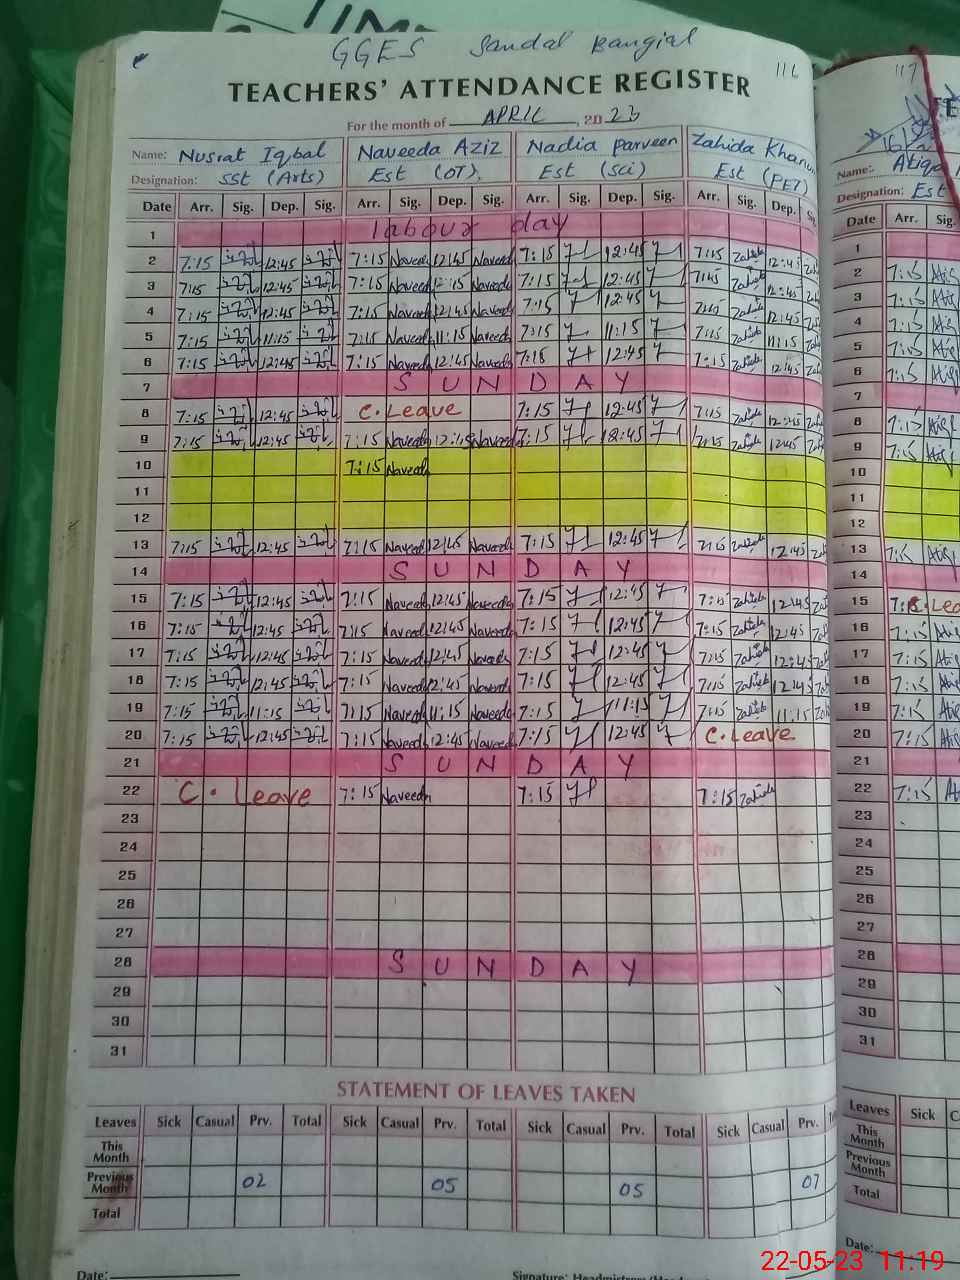 GGES Sandal Bangial
116
TEACHERS' ATTENDANCE REGISTER
For the month of APRIL, 2023
Name: Nusrat Iqbal Naveeda Aziz Nadia Parveen Zahida Khanum
Designation: SSt (Arts) Est (OT). Est (Sci) Est (PET)
Date Arr. Sig. Dep. Sig. Arr. Sig. Dep. Sig. Arr. Sig. Dep. Sig. Arr. Sig. Dep.
1 labour day
2 7:15 12:45 7:15 Naveeda 12:45 Naveeda 7:15 12:45 7:15 Zahida 12:45
3 7:15 12:45 7:15 Naveeda 12:15 Naveeda 7:15 12:45 7:15 Zahida 12:45
4 7:15 12:45 7:15 Naveeda 12:45 Naveeda 7:15 12:45 7:15 Zahida 12:45
5 7:15 11:15 7:15 Naveeda 11:15 Naveeda 7:15 11:15 7:15 Zahida 11:15
6 7:15 12:45 7:15 Naveeda 12:45 Naveeda 7:15 12:45 7:15 Zahida 12:45
7 SUNDAY
8 7:15 12:45 C. Leave 7:15 12:45 7:15 Zahida 12:45
9 7:15 12:45 7:15 Naveeda 12:45 Naveeda 7:15 12:45 7:15 Zahida 12:45
10 7:15 Naveeda
11
12
13 7:15 12:45 7:15 Naveeda 12:45 Naveeda 7:15 12:45 7:15 Zahida 12:45
14 SUNDAY
15 7:15 12:45 7:15 Naveeda 12:45 Naveeda 7:15 12:45 7:15 Zahida 12:45
16 7:15 12:45 7:15 Naveeda 12:45 Naveeda 7:15 12:45 7:15 Zahida 12:45
17 7:15 12:45 7:15 Naveeda 12:45 Naveeda 7:15 12:45 7:15 Zahida 12:45
18 7:15 12:45 7:15 Naveeda 12:45 Naveeda 7:15 12:45 7:15 Zahida 12:45
19 7:15 11:15 7:15 Naveeda 11:15 Naveeda 7:15 11:15 7:15 Zahida 11:15
20 7:15 12:45 7:15 Naveeda 12:45 Naveeda 7:15 12:45 C. Leave
21 SUNDAY
22 C. Leave 7:15 Naveeda 7:15 7:15 Zahida
23
24
25
26
27
28 SUNDAY
29
30
31
STATEMENT OF LEAVES TAKEN
Leaves Sick Casual Prv. Total Sick Casual Prv. Total Sick Casual Prv. Total Sick Casual Prv.
This Month
Previous Month 02 05 05 07
Total
Date:
117
Name: Atiqa
Designation: Est
Date Arr. Sig.
1
2 7:15 Atiq
3 7:15 Atiq
4 7:15 Atiq
5 7:15 Atiq
6 7:15 Atiq
7
8 7:15 Atiq
9 7:15 Atiq
10
11
12
13 7:15 Atiq
14
15 7: C. Lea
16 7:15 Atiq
17 7:15 Atiq
18 7:15 Atiq
19 7:15 Atiq
20 7:15 Atiq
21
22 7:15 At
23
24
25
26
27
28
29
30
31
Leaves Sick C
This Month
Previous Month
Total
Date:
22-05-23 11:19